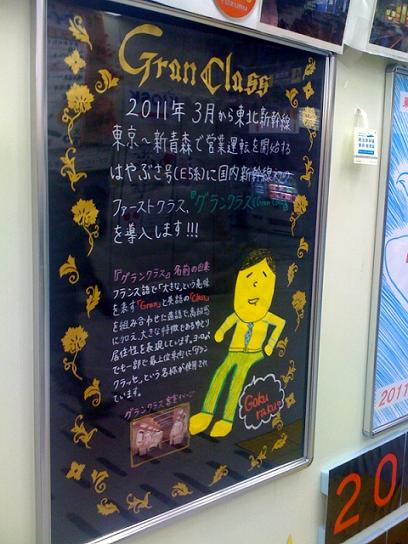 Gran Class
2011年 3月から東北新幹線
東京～新青森で営業運転を開始する
はやぶさ号(E5系)に国内新幹線初の
ファーストクラス、『グランクラス(Gran Class)』
を導入します!!!
『グランクラス』名前の由来
フランス語で「大きな」という意味
を表す「Gran」と英語の「Class」
を組み合わせた造語で、高級感
に加え、大きな特徴であるゆとり
居住性を表現しています。ヨーロッパ
でも一部で最上位車両に「グラン
クラッセ」という名称が使用され
ています。
グランクラス 客室イメージ
Goku
raku。
2011
20